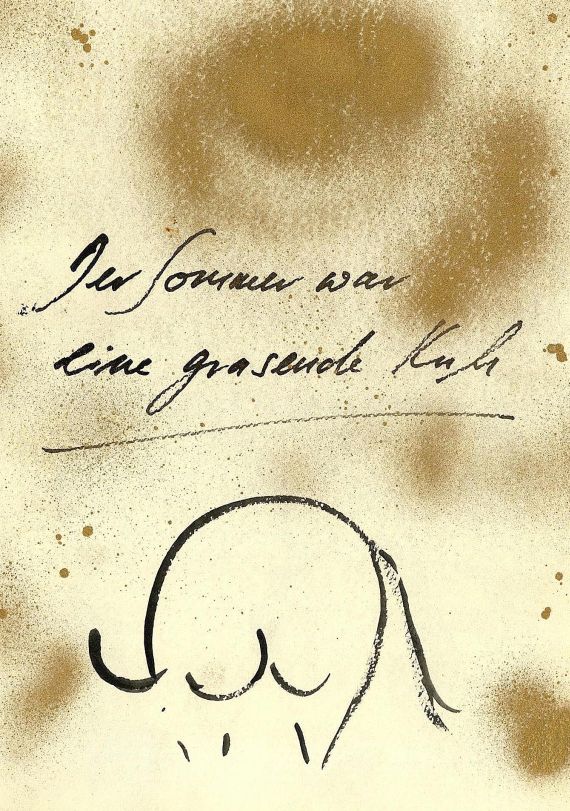 Der Sommer war
eine grasende Kuh